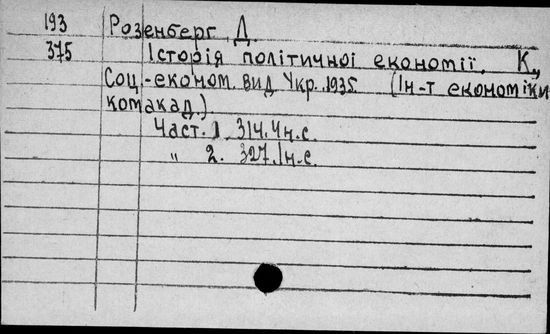 193 Розенберг, Д.
375 Історія політичної економії. К.,
Соц.-економ. вид Укр. 1935 (Ін-т економіки
комакад.)
Част. 1. 314.4н.с.
" 2. 327.1н.с.